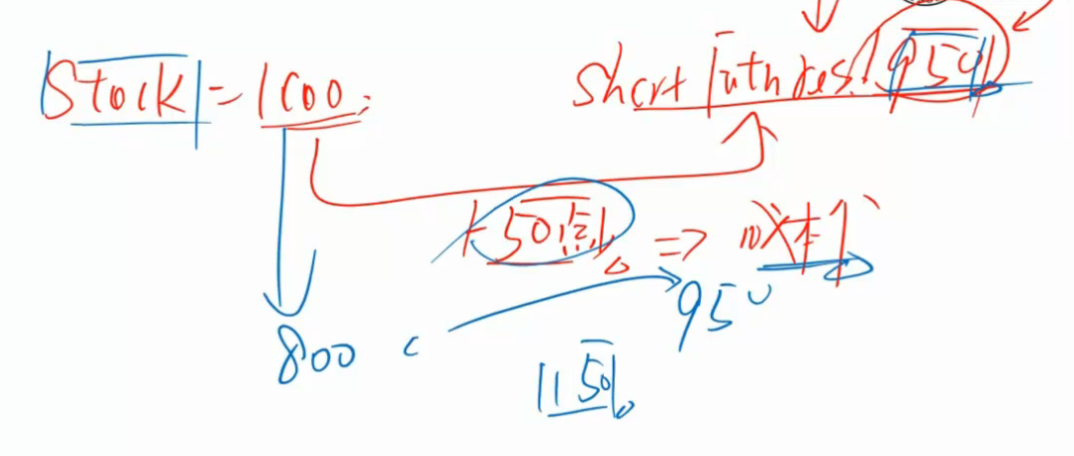 Stock = 1000. Short futures. 950
50点 => 对冲
800 950
1150